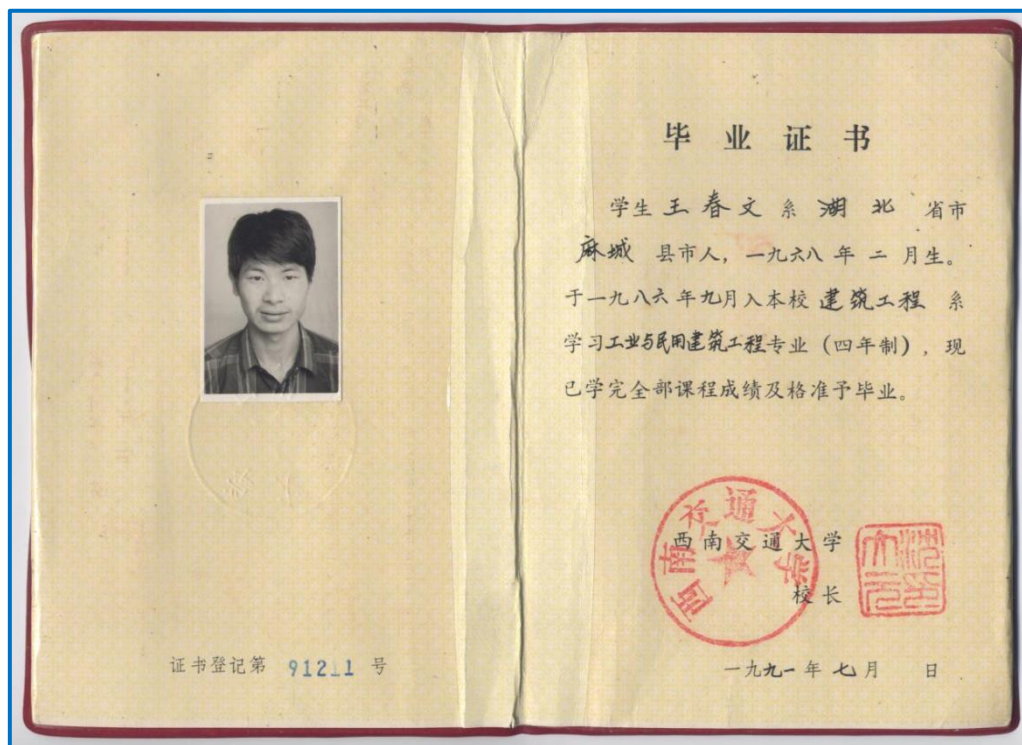 证书登记第 91211 号
毕业证书
学生王春文系湖北省市
麻城县市人，一九六八年二月生。
于一九八六年九月入本校建筑工程系
学习工业与民用建筑工程专业（四年制），现
已学完全部课程成绩及格准予毕业。
西南交通大学
西南交通大学
校长
一九九一年七月 日